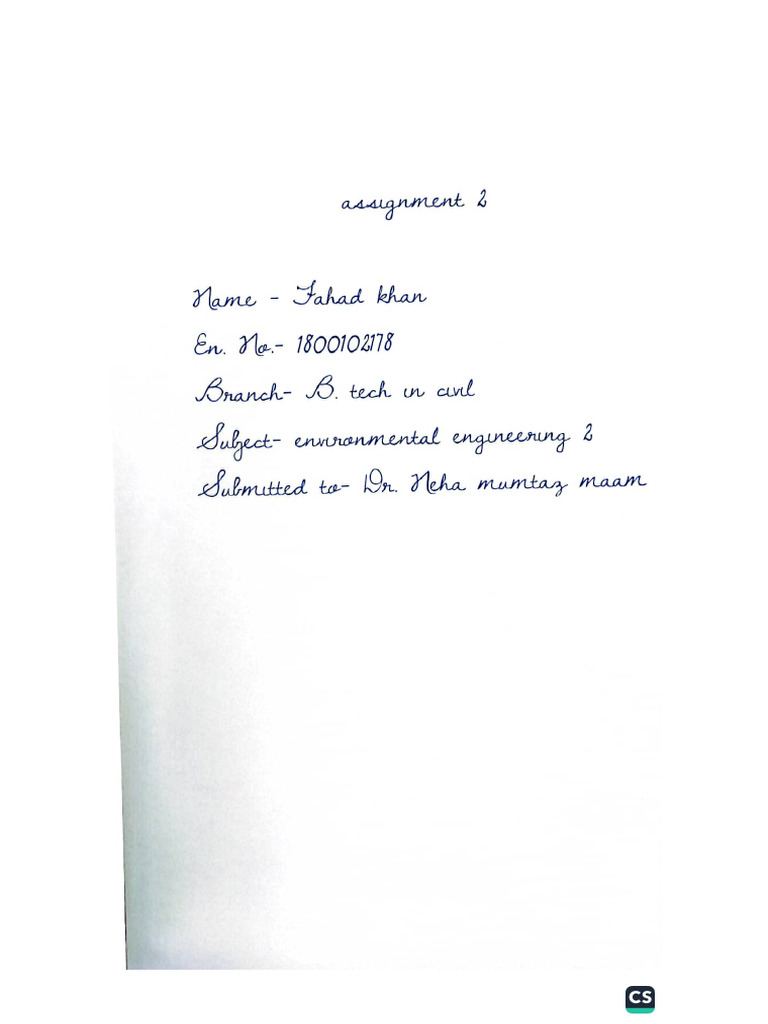 assignment 2
Name - Fahad khan
En. No.- 1800102178
Branch- B. tech in civil
Subject- environmental engineering 2
Submitted to- Dr. Neha mumtaz maam
CS